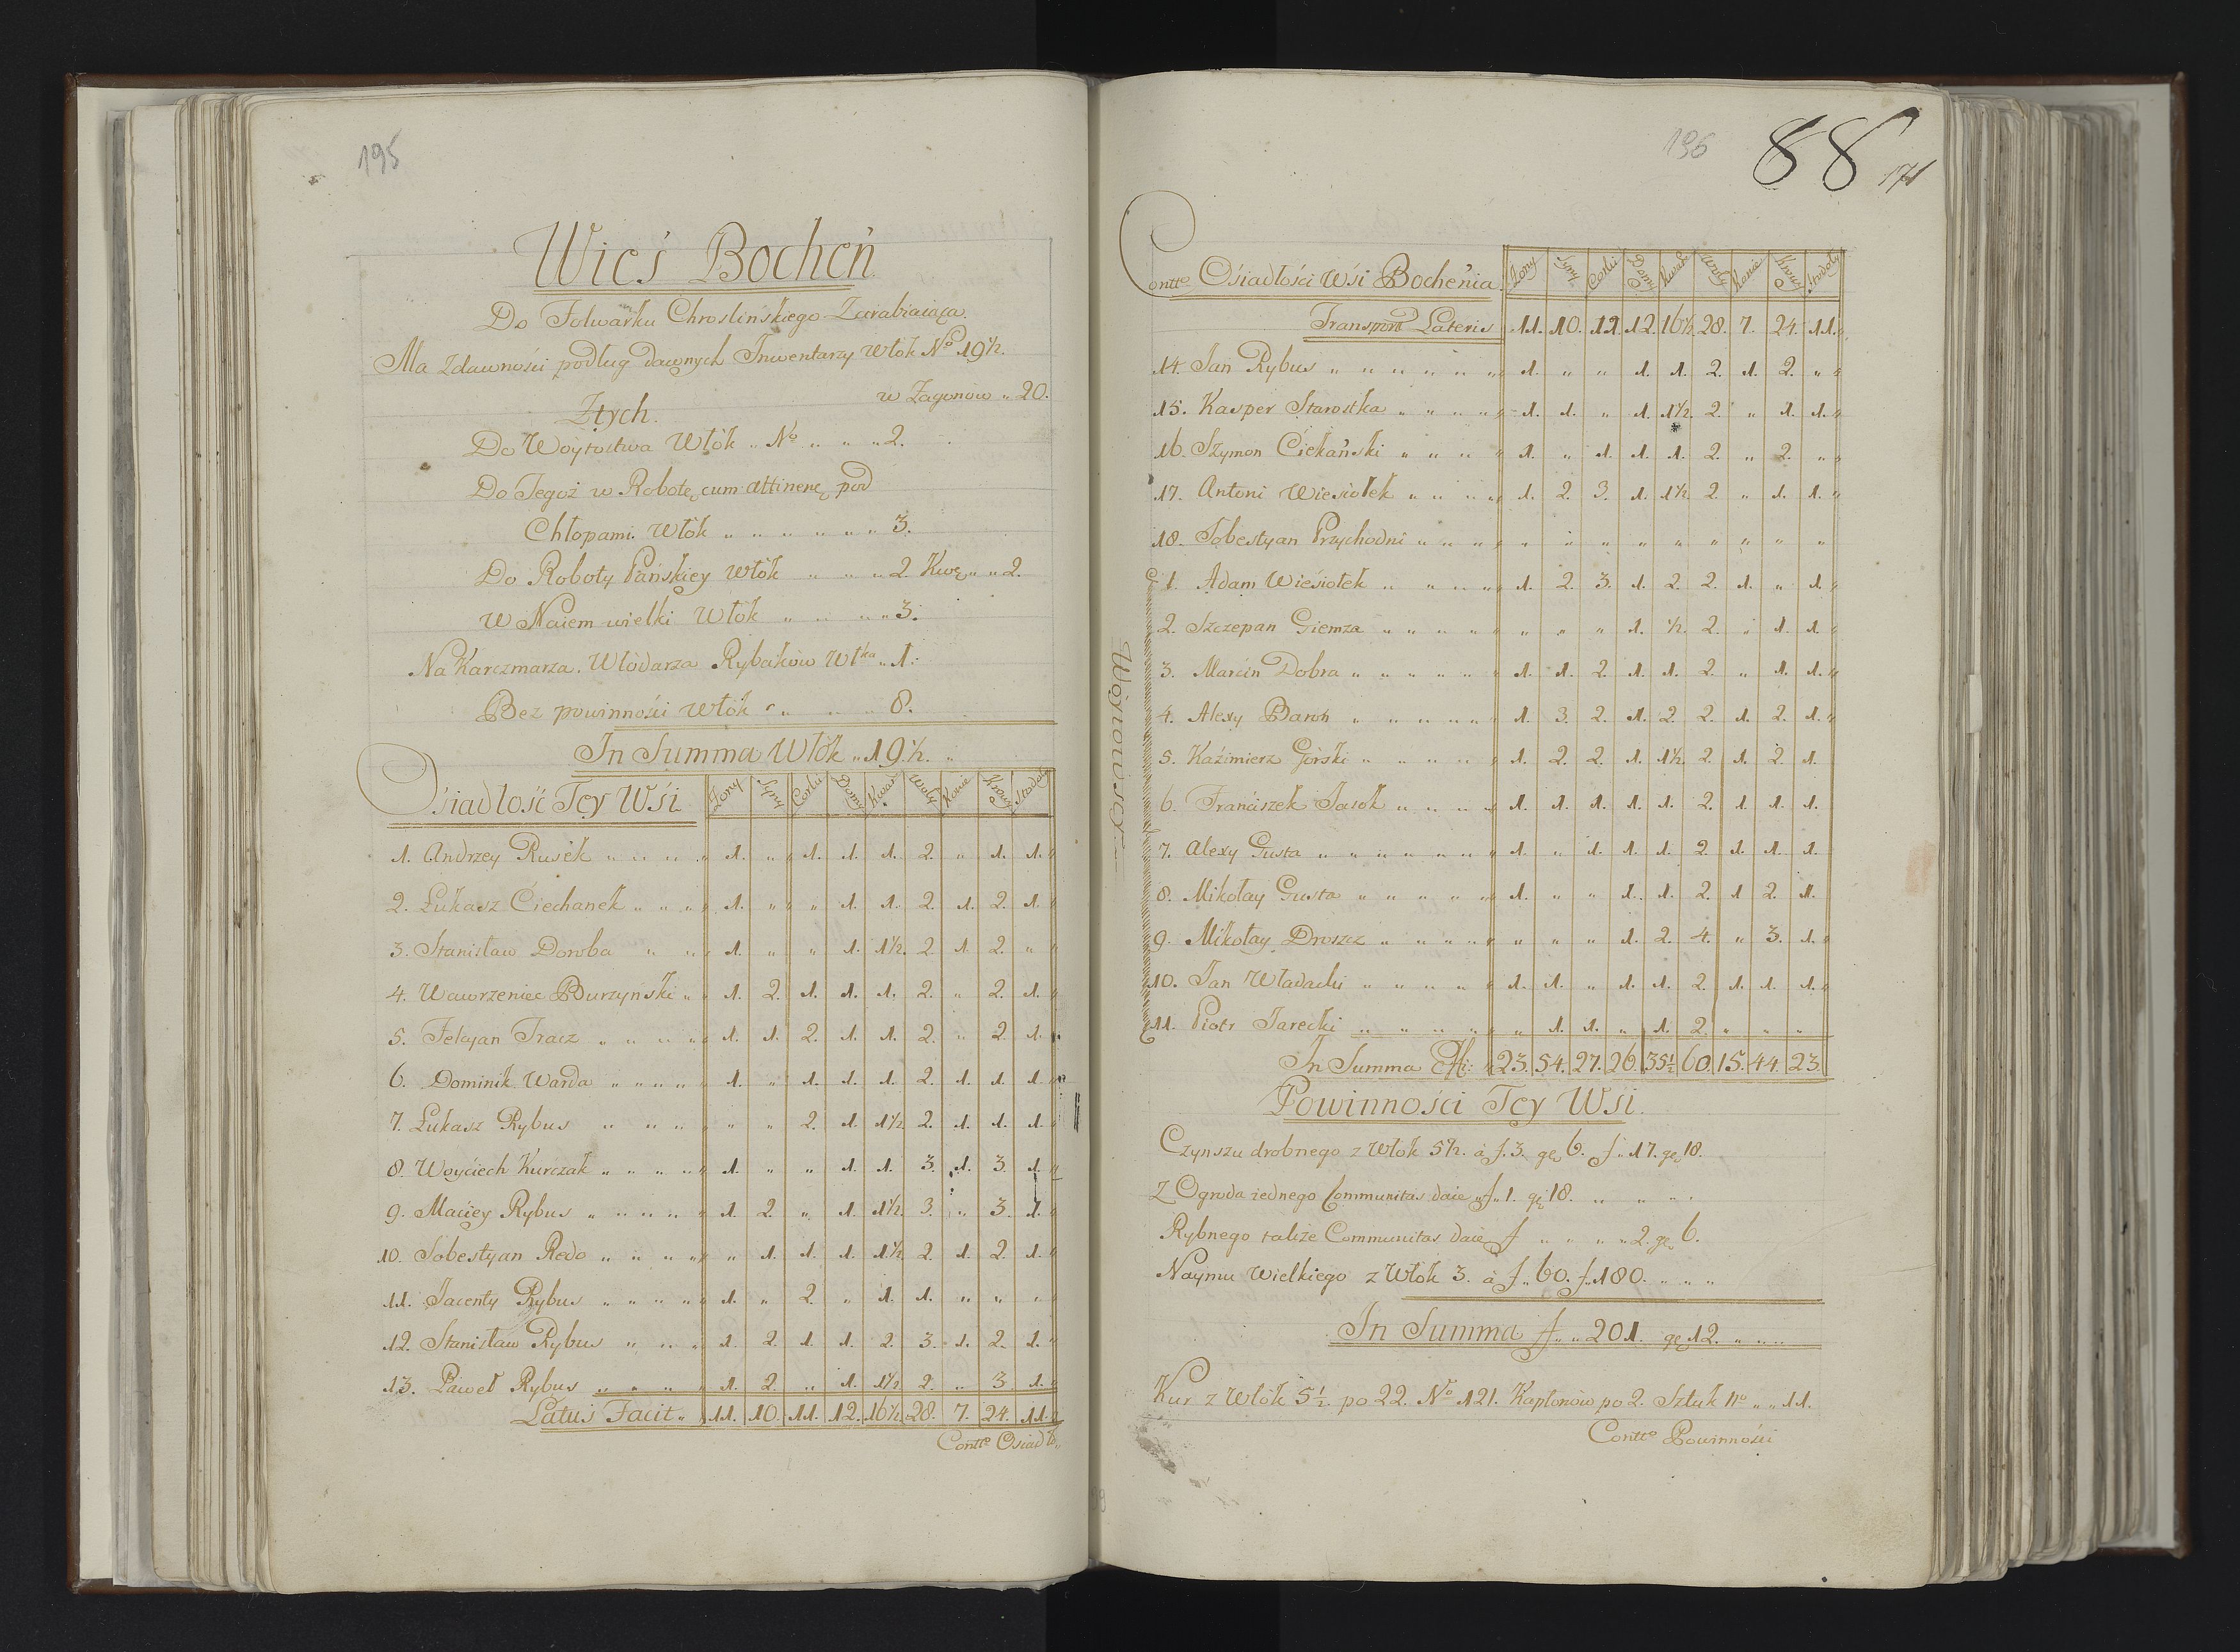 195
Wieś Bocheń
Do Folwarku Chroslinskiego Zarabiaiąca.
Ma Zdawności podług dawnych Inwentarzy Włók No 19½.
w Zagonów „ 20.
Ztych.
Do Woytostwa Włók „ No „ „ „ 2.
Do Tegoż w Robotę cum attinenę pod
Chłopami Włók „ „ „ „ „ „ 3.
Do Roboty Pańskiey Włók „ „ „ 2. Kwę „ „ 2.
W Naiem wielki Włók „ „ „ „ 3.
Na Karczmarza. Włódarza Rybaków Włka „ 1.
Bez powinności Włók „ „ „ 8.
In Summa Włók „ 19.½. „
Osiadłość Tey Wśi Żony Syny Corki Domy Kwart Woły Konie Krowy Stodoły
1. Andrzey Rusek „ „ „ „ 1. „ 1. 1. 1. 2. „ 1. 1.
2. Łukasz Ciechanek „ „ „ 1. „ „ 1. 1. 2. 1. 2. 1.
3. Stanisław Doroba „ „ 1. „ „ 1. 1½. 2. 1. 2. „
4. Wawrzeniec Burzynski „ „ 1. 2. 1. 1. 1. 2. „ 2. 1.
5. Felcyan Tracz „ „ „ „ 1. 1. 2. 1. 1. 2. „ 2. 1.
6. Dominik Warda „ „ „ „ „ 1. „ 1. 1. 1. 2. 1. 1. 1.
7. Łukasz Rybus „ „ „ „ „ 2. 1. 1½. 2. 1. 1. 1.
8. Woyciech Kurczak „ „ „ „ „ 1. „ „ 1. 1. 3. 1. 3. 1.
9. Maciey Rybus „ „ „ „ „ 1. 2. „ 1. 1½. 3. „ 3. 1.
10. Sobestyan Redo „ „ „ „ „ 1. 1. 1. 1½. 2. 1. 2. 1.
11. Jacenty Rybus „ „ „ „ „ 1. „ 2. „ 1. 1. „ „ „
12. Stanisław Rybus „ „ „ 1. 2. 1. 1. 2. 3. 1. 2. 1.
13. Paweł Rybus „ „ „ „ 1. 2. „ 1. 1½. 2. „ 3. 1.
Latus Facit „ 11. 10. 11. 12. 16½. 28. 7. 24. 11.
Contto Osiadło„
196
88
171
Contto Osiadłości Wśi Bochenia Żony Syny Corki Domy Kwart Woły Konie Krowy Stodoły
Transport Lateris 11. 10. 11. 12. 16½. 28. 7. 24. 11.
14. Jan Rybus „ „ „ „ „ „ „ 1. „ „ 1. 1. 2. 1. 2. „
15. Kasper Starostka „ „ „ „ „ 1. 1. „ 1. 1½. 2. „ 1. 1.
16. Szymon Ciekański „ „ „ „ 1. „ 1. 1. 1. 2. „ 2. „
17. Antoni Wiesiołek „ „ „ „ 1. 2. 3. 1. 1½. 2. „ 1. 1.
18. Sobestyan Przychodni „ „ „ „ „ „ „ „ „ „ „ „ „
Woynowscy
1. Adam Wieśiołek „ „ „ „ 1. 2. 3. 1. 2. 2. 1. „ 1.
2. Szczepan Giemza „ „ „ „ „ „ „ „ 1. ½. 2. „ 1. 1.
3. Marcin Dobra „ „ „ „ „ „ 1. 1. 2. 1. 1. 2. „ 1. 1.
4. Alexy Baron „ „ „ „ „ „ 1. 3. 2. 1. 2. 2. 1. 2. 1.
5. Kaźimierz Górski „ „ „ „ „ 1. 2. 2. 1. 1½. 2. 1. 2. 1.
6. Franciszek Jasok „ „ „ „ 1. 1. 1. 1. 1. 2. 1. 1. 1.
7. Alexy Gusta „ „ „ „ „ „ „ 1. „ 1. 1. 1. 2. 1. 1. 1.
8. Mikołay Gusta „ „ „ „ „ „ 1. „ „ 1. 1. 2. 1 2. 1.
9. Mikołay Droszcz „ „ „ „ „ „ „ „ 1. 2. 4. „ 3. 1.
10. Jan Władacki „ „ „ „ „ „ 1. 1. „ 1. 1. 2. 1. 1. 1.
11. Piotr Jarecki „ „ „ „ „ „ 1. 1. „ 1. 2. „ „ „
In Summa 23. 54. 27. 26. 35½ 60. 15. 44. 23.
Powinności Tey Wsi.
Czynszu drobnego z Włók 5½. à f. 3. gę 6. f. 17. gę 18.
Z Ogroda iednego Communitas daie „ f„ 1. gę 18. „ „ „
Rybnego także Communitas daie f „ „ „ „ 2. gę 6.
Naymu Wielkiego z Włók 3. à f„ 60. f„ 180. „ „ „
In Summa f„ „ 201. gę 12. „ „ „
Kur z Włók 5½ po 22. No 121. Kapłonów po 2. Sztuk No „ „ 11.
Contto Powinności